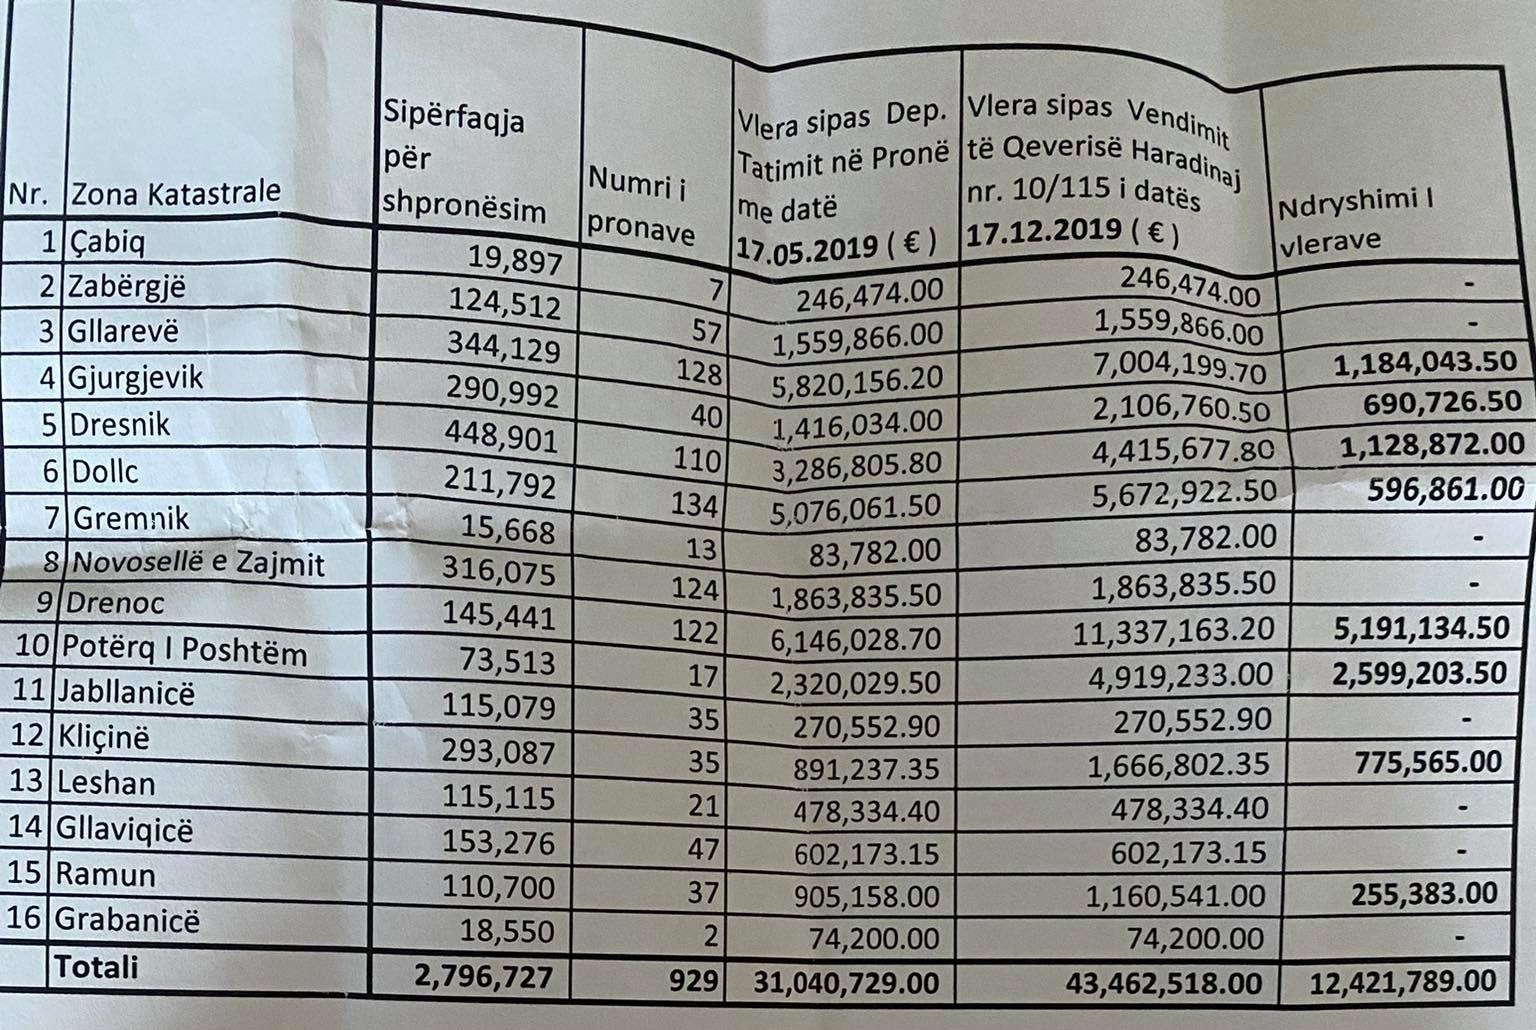 Nr. | Zona Katastrale | Sipërfaqja për shpronësim | Numri i pronave | Vlera sipas Dep. Tatimit në Pronë me datë 17.05.2019 ( € ) | Vlera sipas Vendimit të Qeverisë Haradinaj nr. 10/115 i datës 17.12.2019 ( € ) | Ndryshimi I vlerave
1 | Çabiq | 19,897 | 7 | 246,474.00 | 246,474.00 | -
2 | Zabërgjë | 124,512 | 57 | 1,559,866.00 | 1,559,866.00 | -
3 | Gllarevë | 344,129 | 128 | 5,820,156.20 | 7,004,199.70 | 1,184,043.50
4 | Gjurgjevik | 290,992 | 40 | 1,416,034.00 | 2,106,760.50 | 690,726.50
5 | Dresnik | 448,901 | 110 | 3,286,805.80 | 4,415,677.80 | 1,128,872.00
6 | Dollc | 211,792 | 134 | 5,076,061.50 | 5,672,922.50 | 596,861.00
7 | Gremnik | 15,668 | 13 | 83,782.00 | 83,782.00 | -
8 | Novosellë e Zajmit | 316,075 | 124 | 1,863,835.50 | 1,863,835.50 | -
9 | Drenoc | 145,441 | 122 | 6,146,028.70 | 11,337,163.20 | 5,191,134.50
10 | Potërq I Poshtëm | 73,513 | 17 | 2,320,029.50 | 4,919,233.00 | 2,599,203.50
11 | Jabllanicë | 115,079 | 35 | 270,552.90 | 270,552.90 | -
12 | Kliçinë | 293,087 | 35 | 891,237.35 | 1,666,802.35 | 775,565.00
13 | Leshan | 115,115 | 21 | 478,334.40 | 478,334.40 | -
14 | Gllaviqicë | 153,276 | 47 | 602,173.15 | 602,173.15 | -
15 | Ramun | 110,700 | 37 | 905,158.00 | 1,160,541.00 | 255,383.00
16 | Grabanicë | 18,550 | 2 | 74,200.00 | 74,200.00 | -
Totali | 2,796,727 | 929 | 31,040,729.00 | 43,462,518.00 | 12,421,789.00